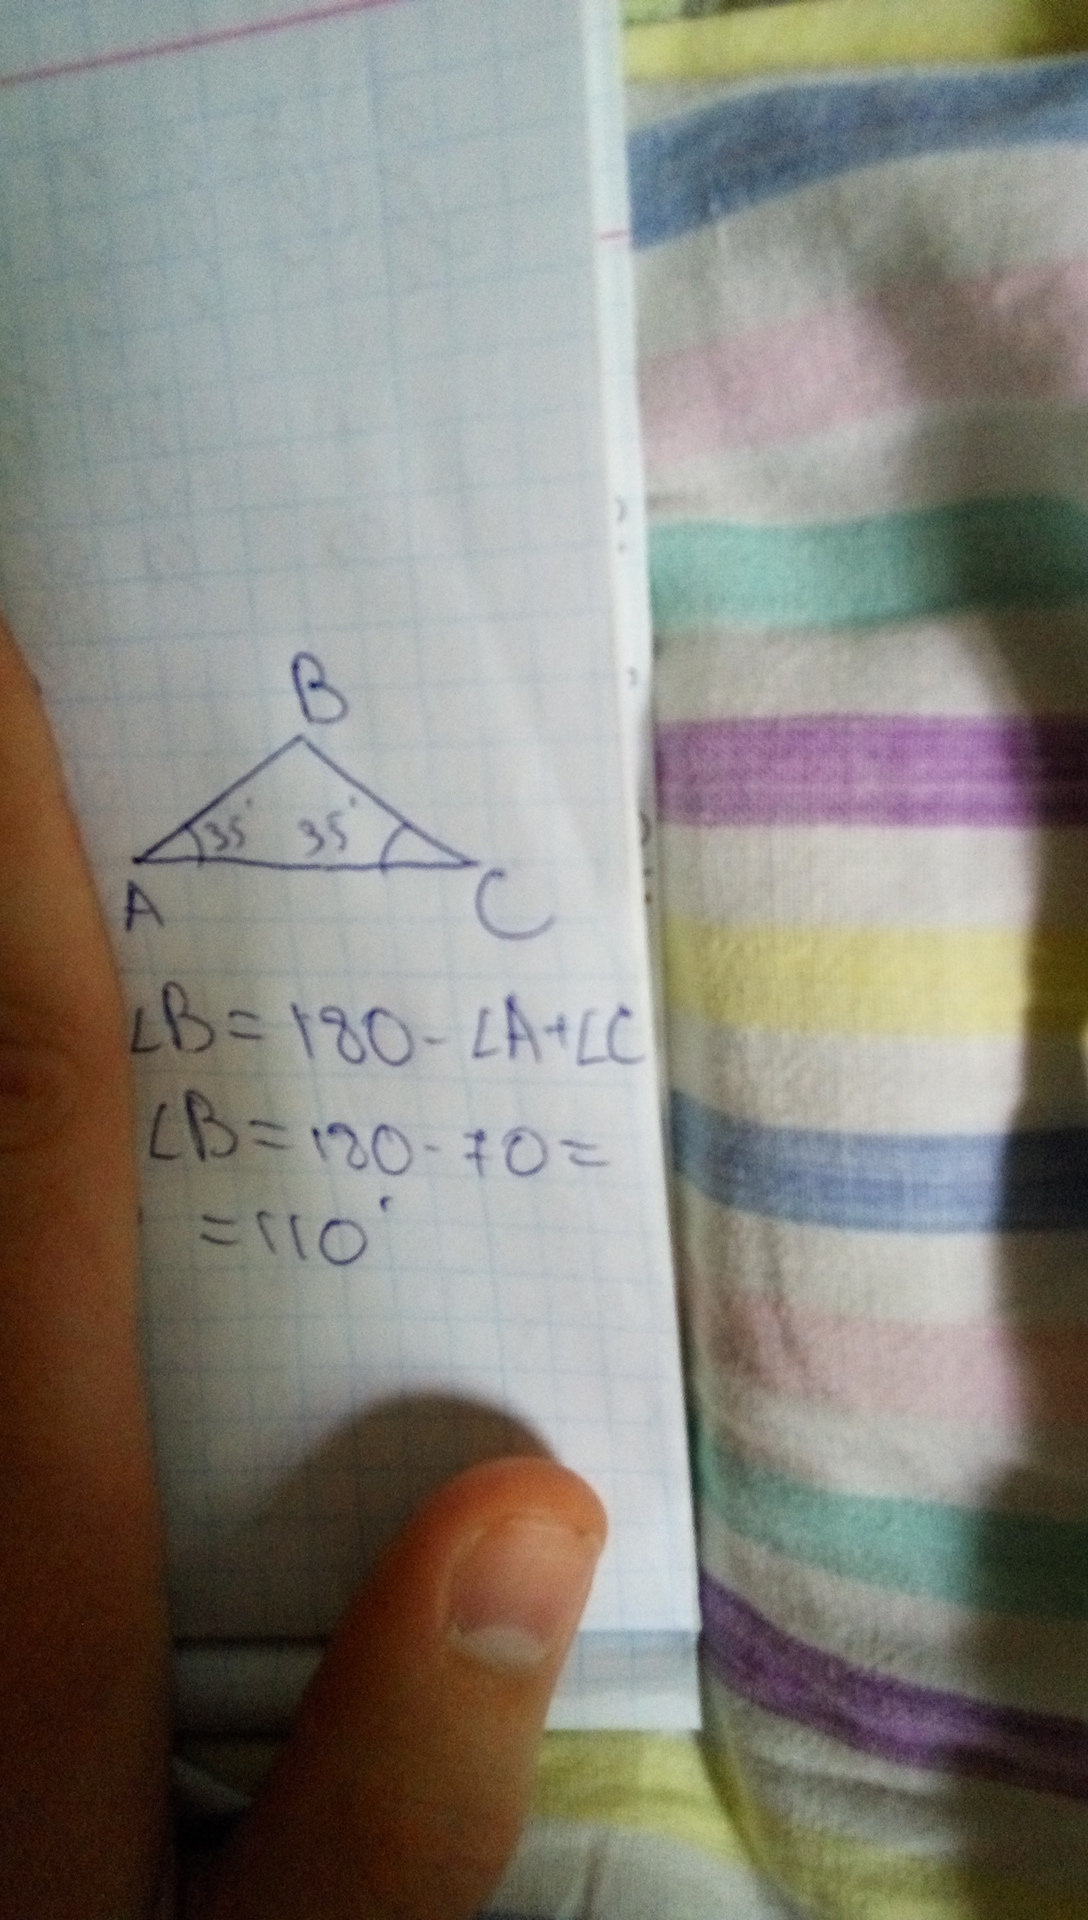 B
35° 35°
A C
∠B = 180 - ∠A+∠C
∠B = 180 - 70 =
= 110°